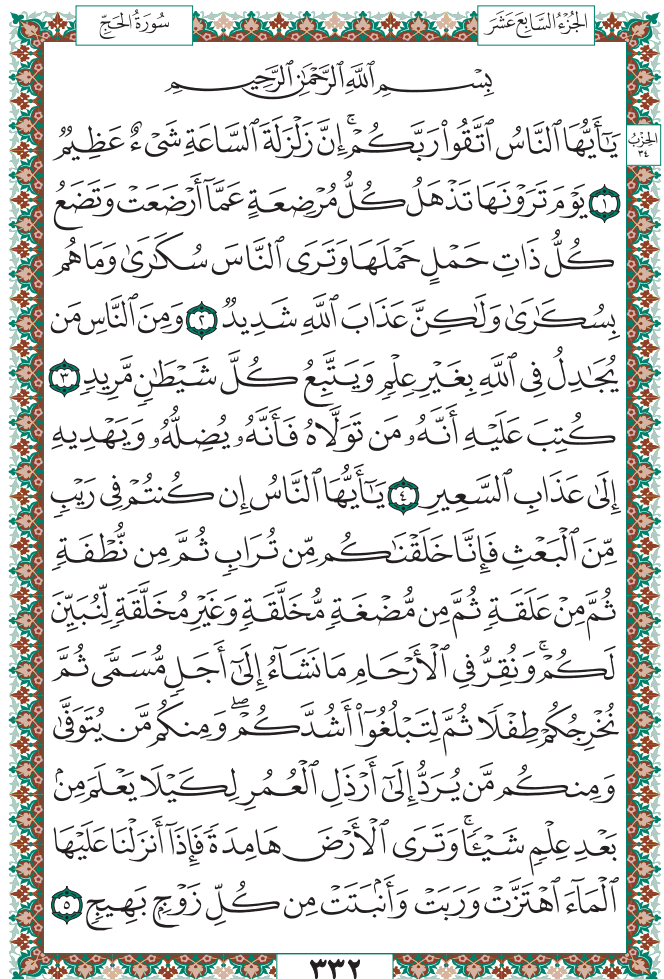 الجُزْءُ السَّابِعَ عَشَرَ
سُورَةُ الحَجِّ
بِسْمِ ٱللَّهِ ٱلرَّحْمَٰنِ ٱلرَّحِيمِ
يَٰٓأَيُّهَا ٱلنَّاسُ ٱتَّقُوا۟ رَبَّكُمْ ۚ إِنَّ زَلْزَلَةَ ٱلسَّاعَةِ شَىْءٌ عَظِيمٌ
الحِزْبُ
٣٤
١ يَوْمَ تَرَوْنَهَا تَذْهَلُ كُلُّ مُرْضِعَةٍ عَمَّآ أَرْضَعَتْ وَتَضَعُ
كُلُّ ذَاتِ حَمْلٍ حَمْلَهَا وَتَرَى ٱلنَّاسَ سُكَٰرَىٰ وَمَا هُم
بِسُكَٰرَىٰ وَلَٰكِنَّ عَذَابَ ٱللَّهِ شَدِيدٌ ٢ وَمِنَ ٱلنَّاسِ مَن
يُجَٰدِلُ فِى ٱللَّهِ بِغَيْرِ عِلْمٍ وَيَتَّبِعُ كُلَّ شَيْطَٰنٍ مَّرِيدٍ ٣
كُتِبَ عَلَيْهِ أَنَّهُۥ مَن تَوَلَّاهُ فَأَنَّهُۥ يُضِلُّهُۥ وَيَهْدِيهِ
إِلَىٰ عَذَابِ ٱلسَّعِيرِ ٤ يَٰٓأَيُّهَا ٱلنَّاسُ إِن كُنتُمْ فِى رَيْبٍ
مِّنَ ٱلْبَعْثِ فَإِنَّا خَلَقْنَٰكُم مِّن تُرَابٍ ثُمَّ مِن نُّطْفَةٍ
ثُمَّ مِنْ عَلَقَةٍ ثُمَّ مِن مُّضْغَةٍ مُّخَلَّقَةٍ وَغَيْرِ مُخَلَّقَةٍ لِّنُبَيِّنَ
لَكُمْ ۚ وَنُقِرُّ فِى ٱلْأَرْحَامِ مَا نَشَآءُ إِلَىٰٓ أَجَلٍ مُّسَمًّى ثُمَّ
نُخْرِجُكُمْ طِفْلًا ثُمَّ لِتَبْلُغُوٓا۟ أَشُدَّكُمْ ۖ وَمِنكُم مَّن يُتَوَفَّىٰ
وَمِنكُم مَّن يُرَدُّ إِلَىٰٓ أَرْذَلِ ٱلْعُمُرِ لِكَيْلَا يَعْلَمَ مِنۢ
بَعْدِ عِلْمٍ شَيْـًٔا ۚ وَتَرَى ٱلْأَرْضَ هَامِدَةً فَإِذَآ أَنزَلْنَا عَلَيْهَا
ٱلْمَآءَ ٱهْتَزَّتْ وَرَبَتْ وَأَنۢبَتَتْ مِن كُلِّ زَوْجٍۭ بَهِيجٍ ٥
٣٣٢